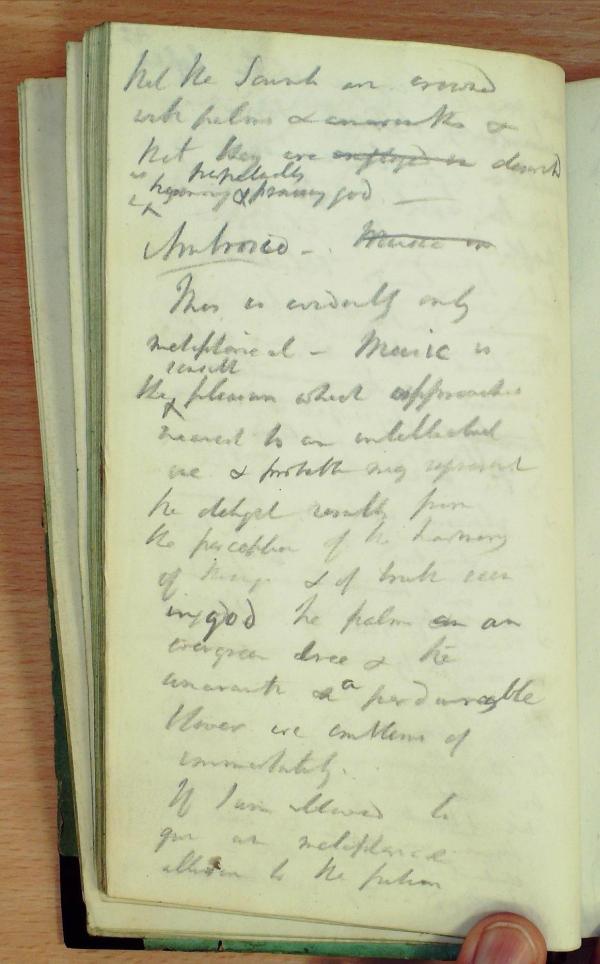 that the Saints are crowned
with palms & amaranths &
that they are employed in described
as perpetually
hymning & praising god. —
Ambrosio – . Music is
This is evidently only
metaphorical – Music is
sensual
the pleasure which approaches
nearest to an intellectual
one & probably may represent
the delight resulting from
the perception of the harmony
of things & of truth seen
in god the palm as an
evergreen tree & the
amaranth a perdurable
flower are emblems of
immortality.
If I am allowed to
give a metaphorical
allusion to the future